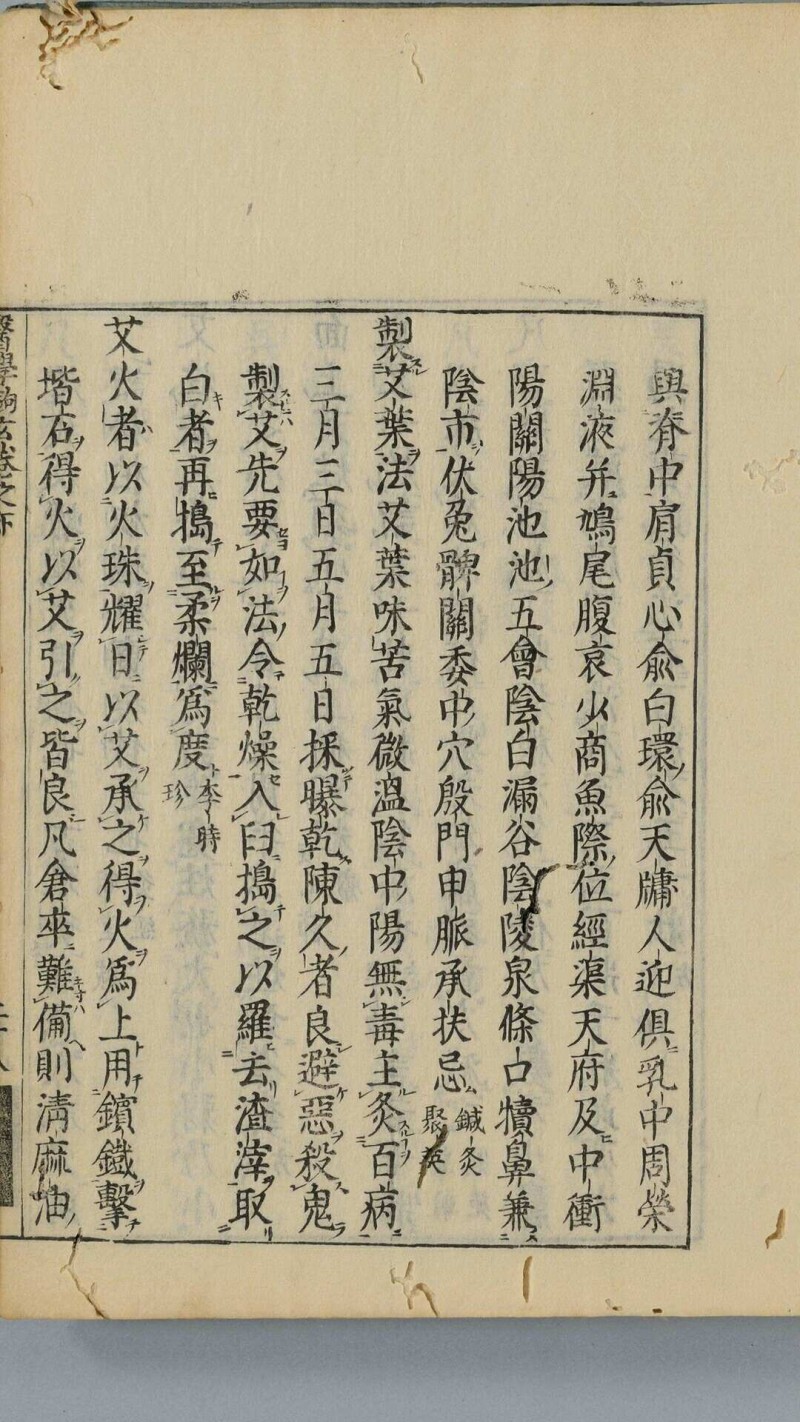 與脊中肩貞心俞白環俞天牗人迎俱乳中周榮
淵液并鳩尾腹哀少商魚際位經渠天府及中衝
陽關陽池池五會陰白漏谷陰陵泉條口犢鼻兼
陰市伏兔髀關委中穴殷門申脈承扶忌鍼灸
聚英
製艾葉法艾葉味苦氣微溫陰中陽無毒主灸百病
三月三日五月五日採曝乾陳久者良避惡殺鬼
製艾先要如法令乾燥入臼搗之以羅去渣滓取
白者再搗至柔爛爲度李時
珍
艾火者以火珠耀日以艾承之得火爲上用鑌鐵擊
堦石得火以艾引之皆良凡倉卒難備則淸麻油
醫學 玄卷之下